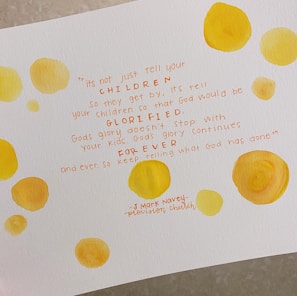 "its not just tell your
CHILDREN
so they get by, it's tell
your children so that God would be
GLORIFIED.
Gods glory doesn't stop with
your kids, Gods glory continues
FOREVER
and ever, so keep telling what God has done"
-J. Mark Harey
church